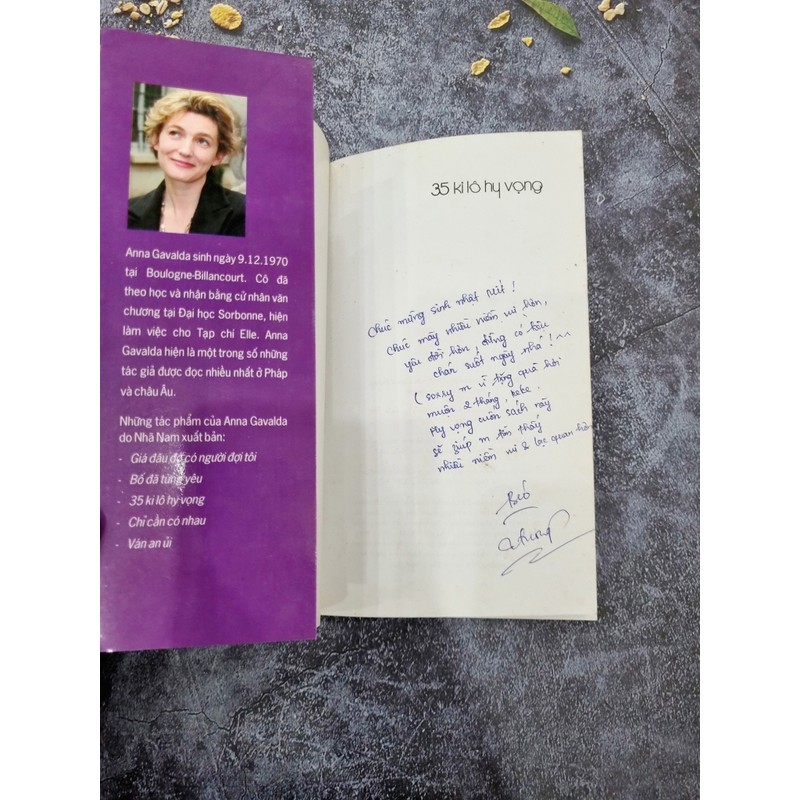 Anna Gavalda sinh ngày 9.12.1970
tại Boulogne-Billancourt. Cô đã
theo học và nhận bằng cử nhân văn
chương tại Đại học Sorbonne, hiện
làm việc cho Tạp chí Elle. Anna
Gavalda hiện là một trong số những
tác giả được đọc nhiều nhất ở Pháp
và châu Âu.
Những tác phẩm của Anna Gavalda
do Nhã Nam xuất bản:
- Giá đâu đó có người đợi tôi
- Bố đã từng yêu
- 35 ki lô hy vọng
- Chỉ cần có nhau
- Ván an ủi
35 ki lô hy vọng
Chúc mừng sinh nhật Mít!
Chúc mày nhiều niềm vui hơn,
yêu đời hơn, đừng có bêu
chán suốt ngày nhá!~
(sorry m vì tặng quà hơi
muộn 2 tháng, keke.
Hy vọng cuốn sách này
sẽ giúp m tìm thấy
nhiều niềm vui & lạc quan hơn